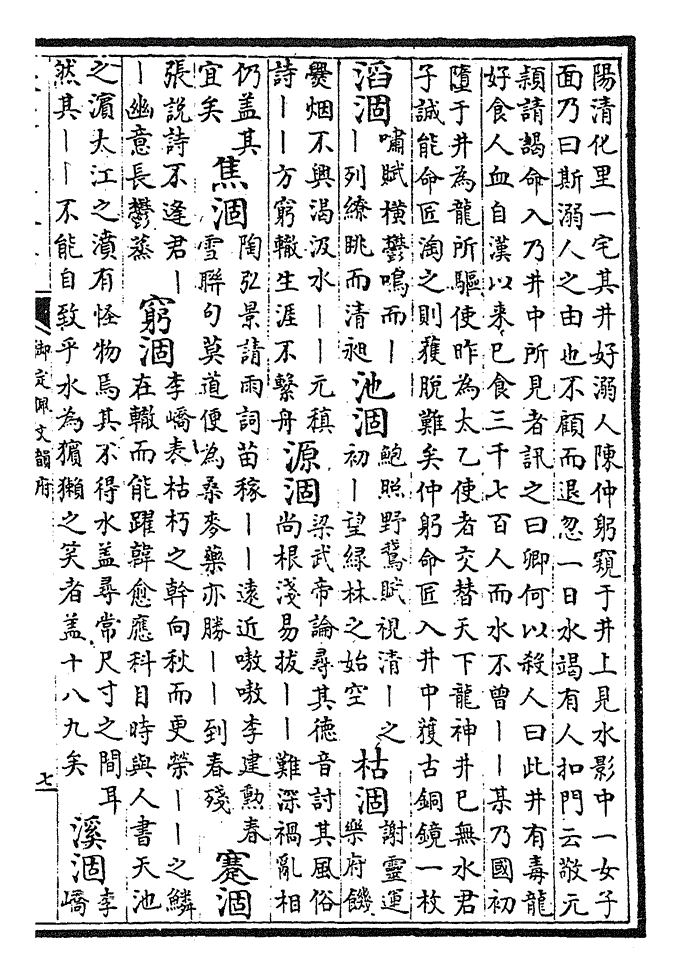 陽清化里一宅其井好溺人陳仲躬窺于井上見水影中一女子
面乃曰斯溺人之由也不顧而退忽一日水竭有人扣門云敬元
頴請謁命入乃井中所見者訊之曰卿何以殺人曰此井有毒龍
好食人血自漢以来巳食三千七百人而水不曾丨丨某乃國初
墮于井為龍所驅使昨為太乙使者交替天下龍神井已無水君
子誠能命匠淘之則獲脫難矣仲躬命匠入井中獲古銅鏡一枚
滔涸
嘯賦橫鬱鳴而丨
丨列繚眺而清昶
池涸
鮑照野鵞賦視清丨之
初丨望緑林之始空
枯涸
謝靈運
樂府饑
爨烟不興渴汲水丨丨元稹
詩丨丨方窮轍生涯不繫舟
源涸
梁武帝論尋其德音討其風俗
尚根淺易拔丨丨難深禍亂相
仍盖其
宜矣
焦涸
陶弘景請雨詞苗稼丨丨遠近嗷嗷李建勳春
雪聯句莫道便為桑麥藥亦勝丨丨到春殘
蹇涸
張說詩不逢君丨
丨幽意長鬱蒸
窮涸
李嶠表枯朽之幹向秋而更榮丨丨之鱗
在轍而能躍韓愈應科目時與人書天池
之濵大江之濆有怪物焉其不得水盖尋常尺寸之間耳
然其丨丨不能自致乎水為獱獺之笑者盖十八九矣
溪涸
李
嶠
御定佩文韻府
七